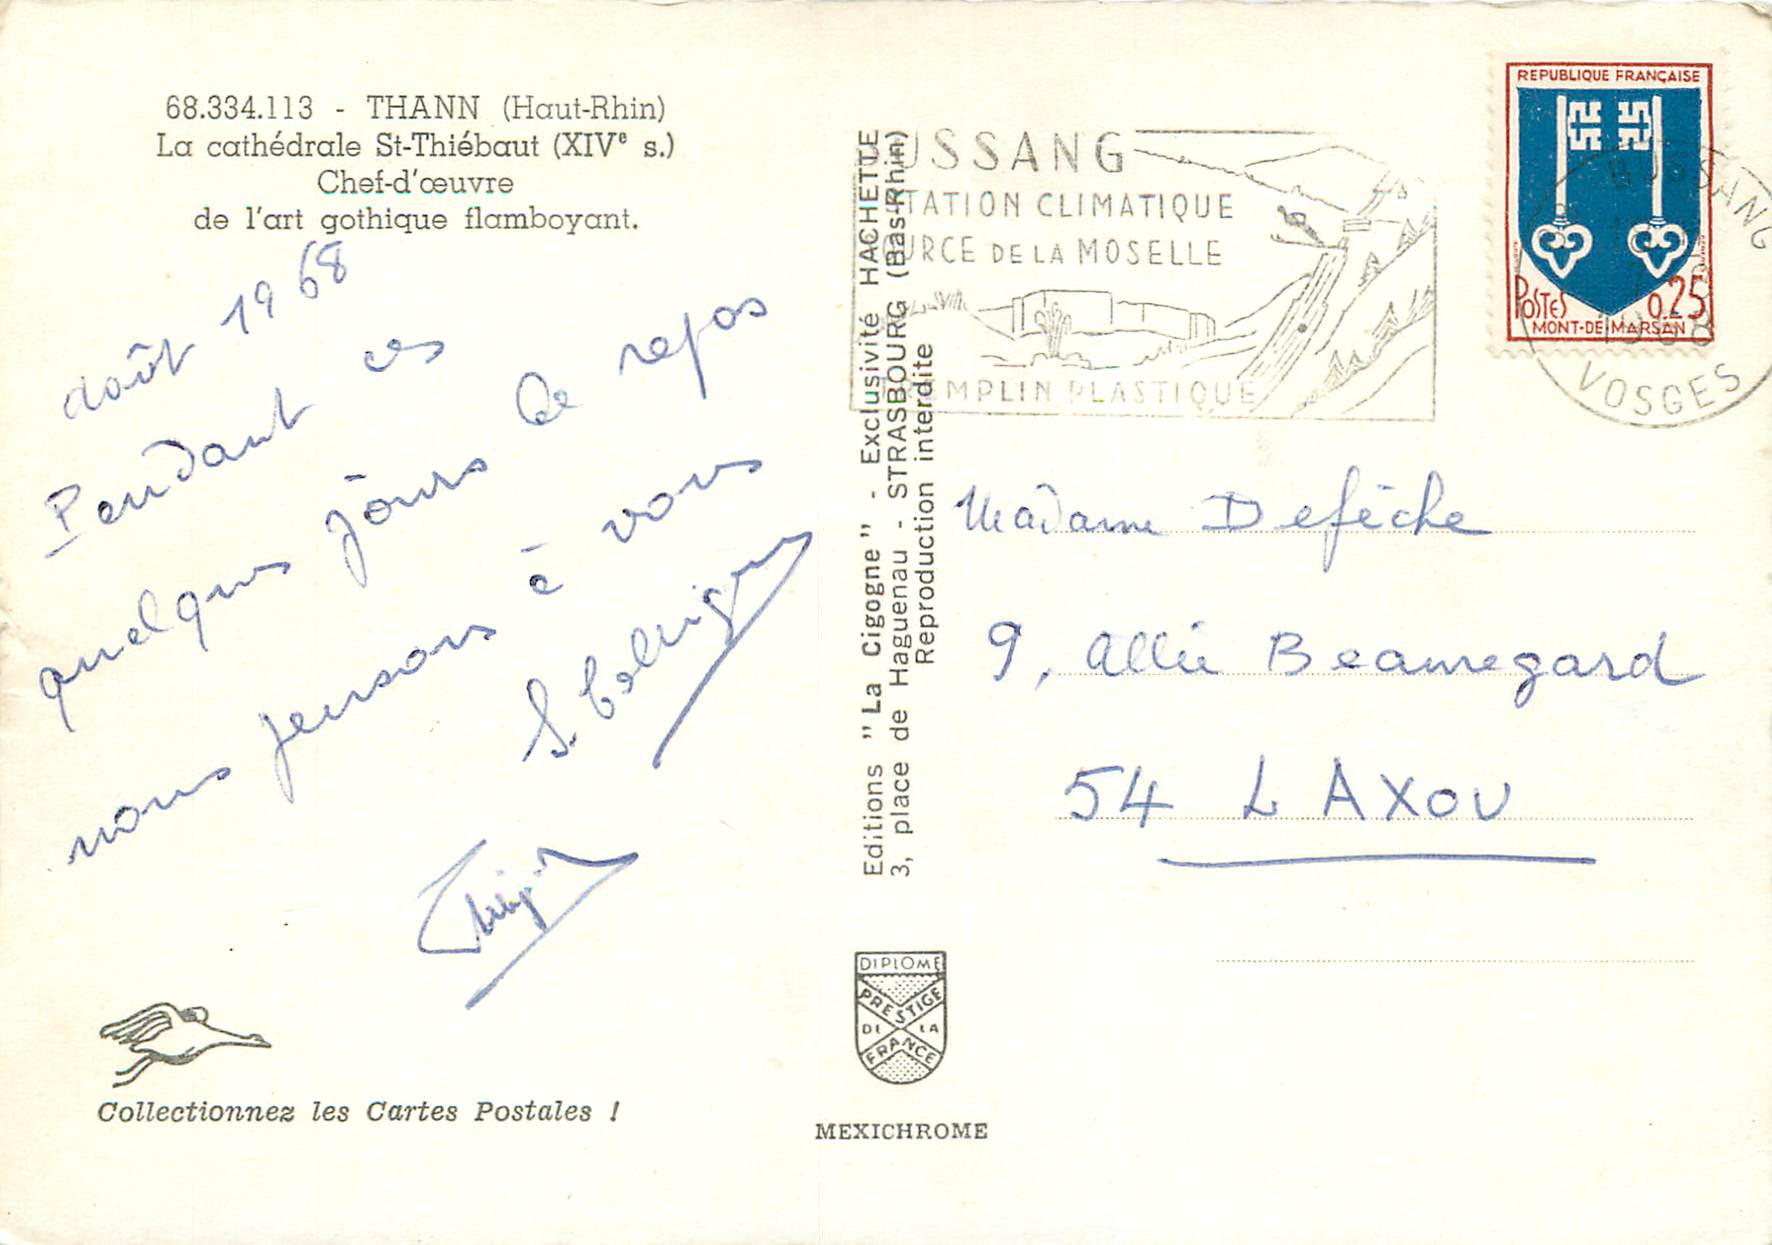 68.334.113 - THANN (Haut-Rhin)
La cathédrale St-Thiébaut (XIVe s.)
Chef-d'œuvre
de l'art gothique flamboyant.
août 1968
Pendant ces
quelques jours de repos
nous pensons à vous
Collectionnez les Cartes Postales !
Editions "La Cigogne" - Exclusivité HACHETTE
3, place de Haguenau - STRASBOURG (Bas-Rhin)
Reproduction interdite
DIPLOME
PRESTIGE
DE LA
FRANCE
MEXICHROME
BUSSANG
STATION CLIMATIQUE
SOURCE DE LA MOSELLE
TREMPLIN PLASTIQUE
REPUBLIQUE FRANÇAISE
POSTES 0,25
MONT-DE-MARSAN
BUSSANG
1968
VOSGES
Madame Defèche
9, Allée Beauregard
54 LAXOU